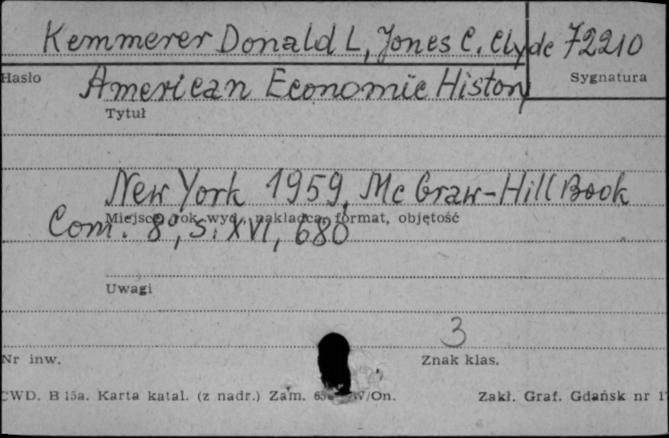 Kemmerer Donald L, Jones C. Clyde 72210
Hasło
Sygnatura
American Economic History
Tytuł
New York 1959, Mc Graw-Hill Book
Miejsce, rok wyd., nakładca, format, objętość
Com. 8°, s. XVI, 680
Uwagi
3
Nr inw.
Znak klas.
CWD. B 15a. Karta katal. (z nadr.) Zam. /On.
Zakł. Graf. Gdańsk nr